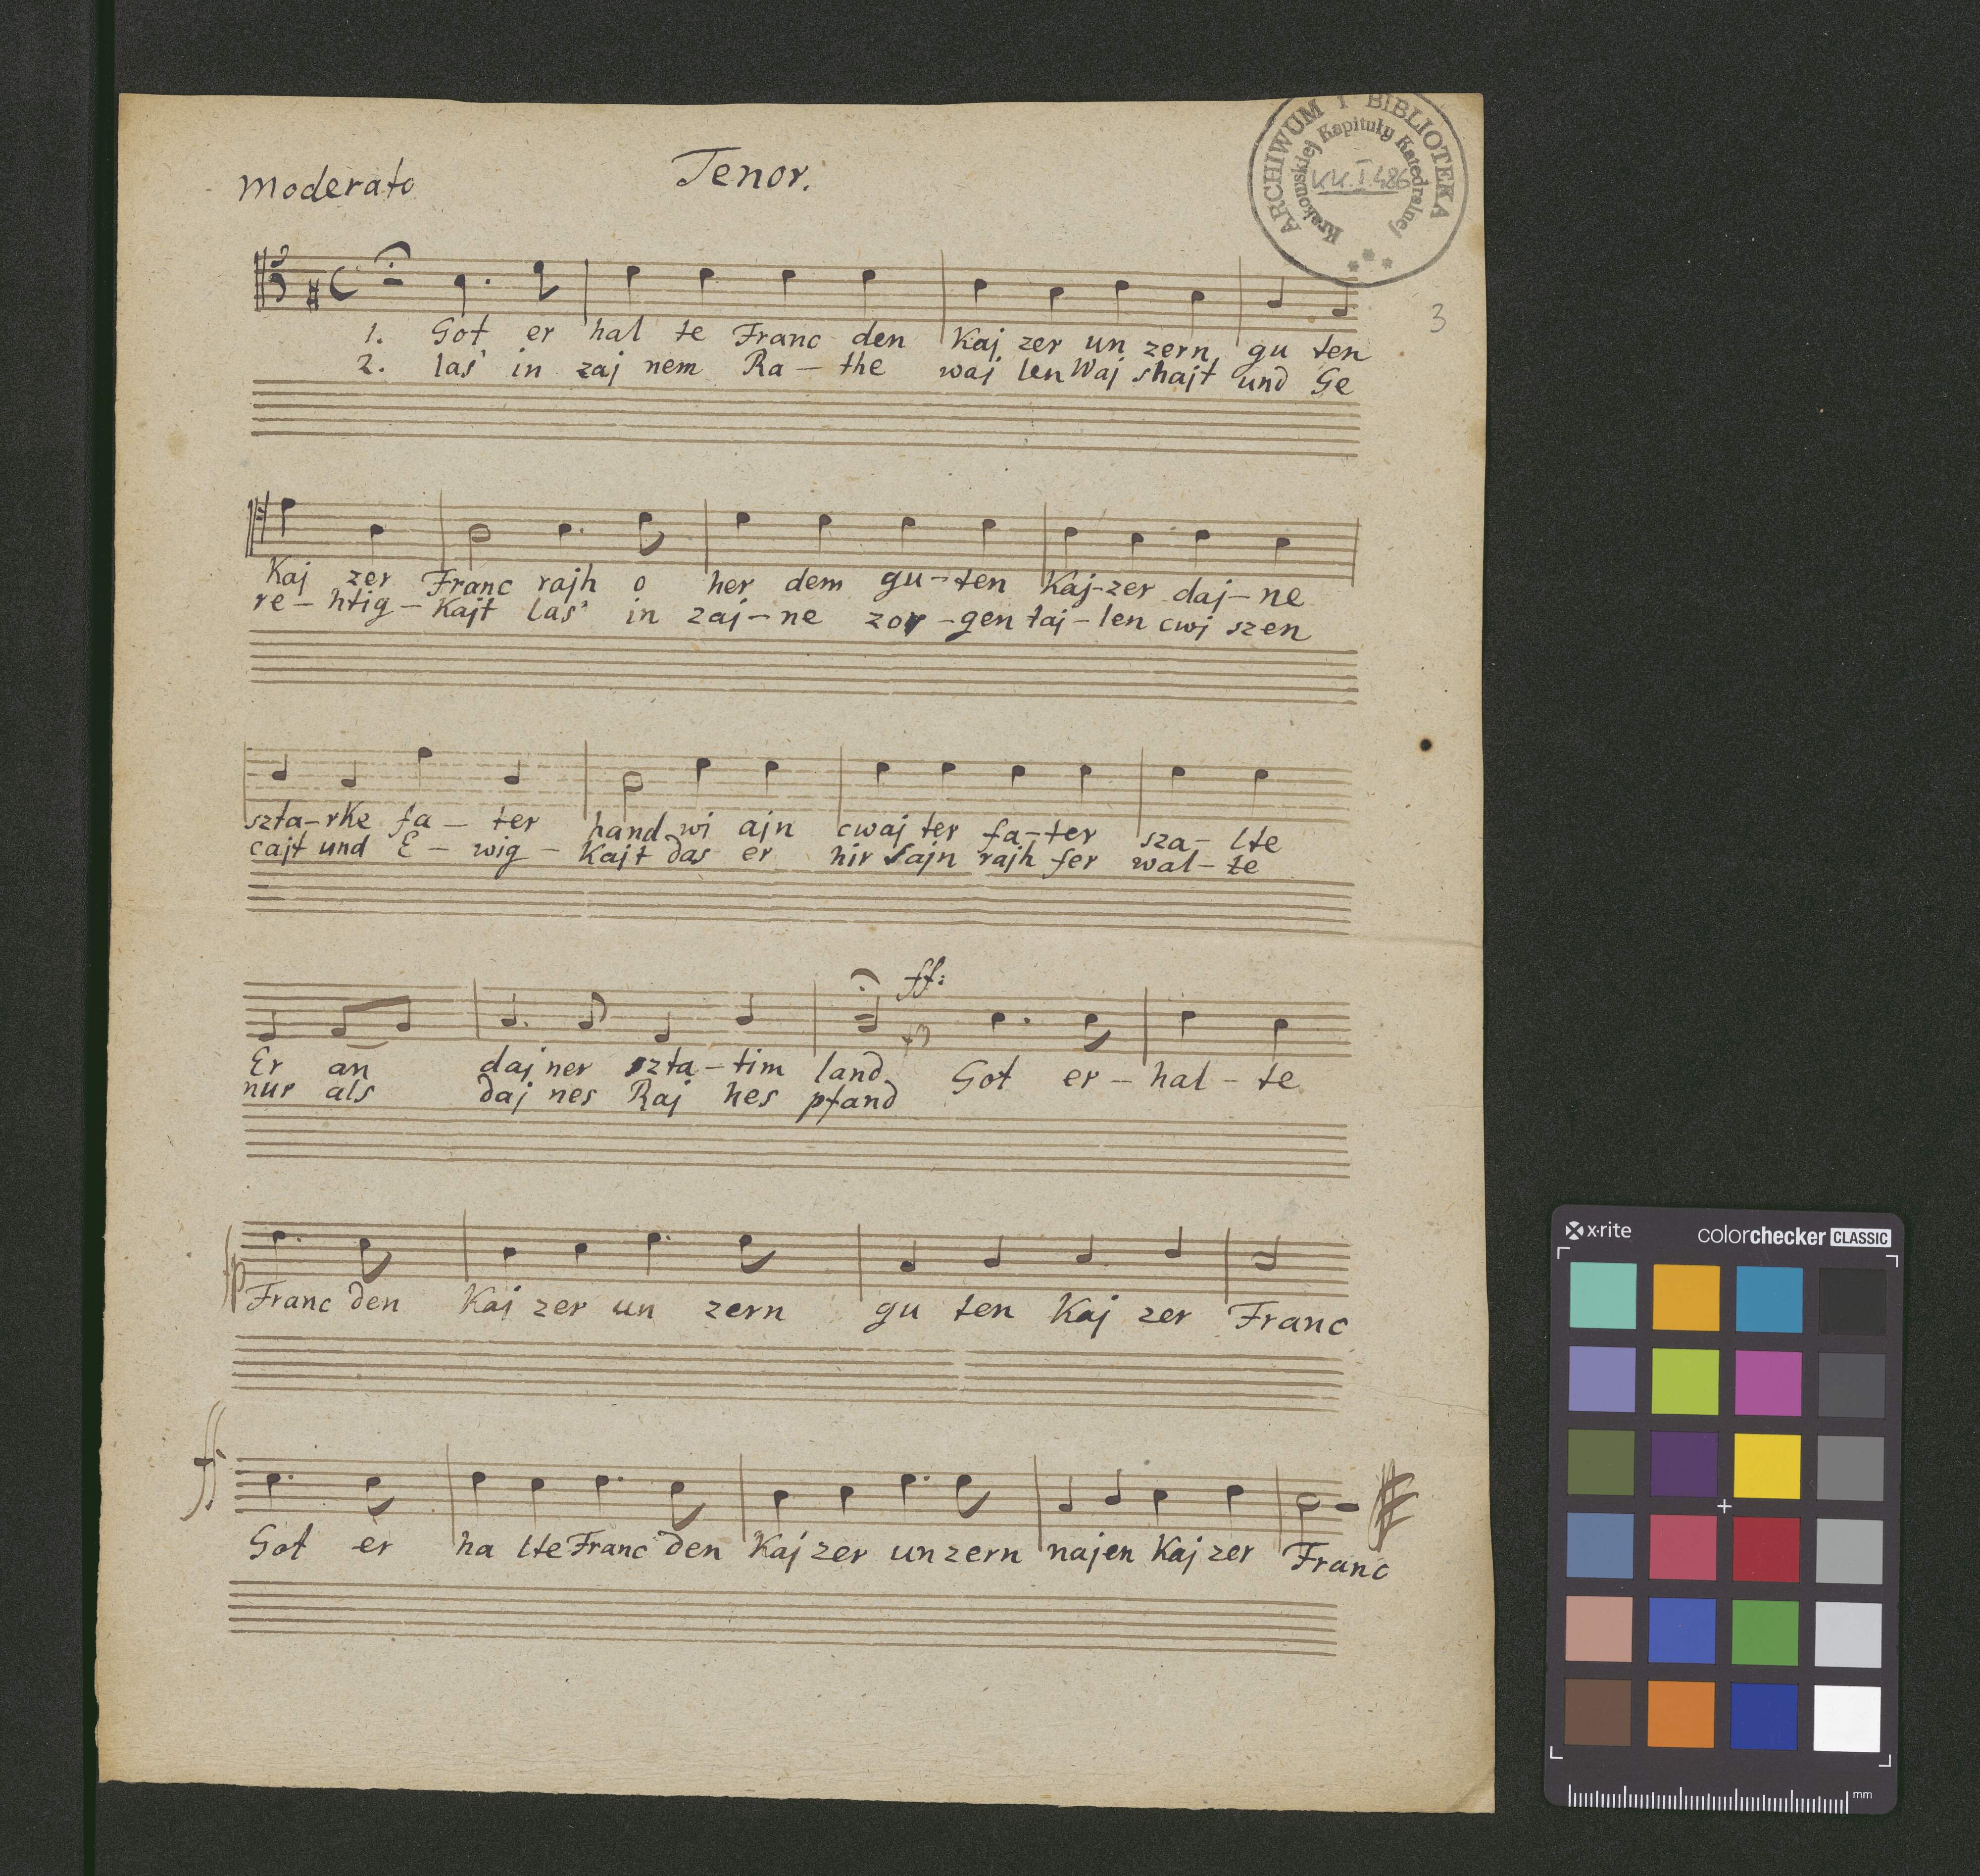 Moderato
Tenor.
ARCHIWUM I BIBLIOTEKA
Krakowskiej Kapituły Katedralnej
KK.I.486
3
1. Got er hal te Franc den Kaj zer un zern gu ten
2. las' in zaj nem Ra - the waj len Waj shajt und Ge
Kaj zer Franc rajh o her dem gu - ten Kaj - zer daj - ne
re - htig - Kajt las' in zaj - ne zor - gen taj - len cwj szen
szta - rke fa - ter hand wi ajn cwaj ter fa - ter sza - lte
cajt und E - wig - Kajt das er hir Sajn rajh fer wal - te
ff:
Er an daj ner szta - tim land Got er - hal - te
nur als daj nes Raj hes pfand
p
Franc den Kaj zer un zern gu ten Kaj zer Franc
f:
Got er ha lte Franc den Kaj zer un zern najen Kaj zer Franc
x-rite
colorchecker CLASSIC
mm